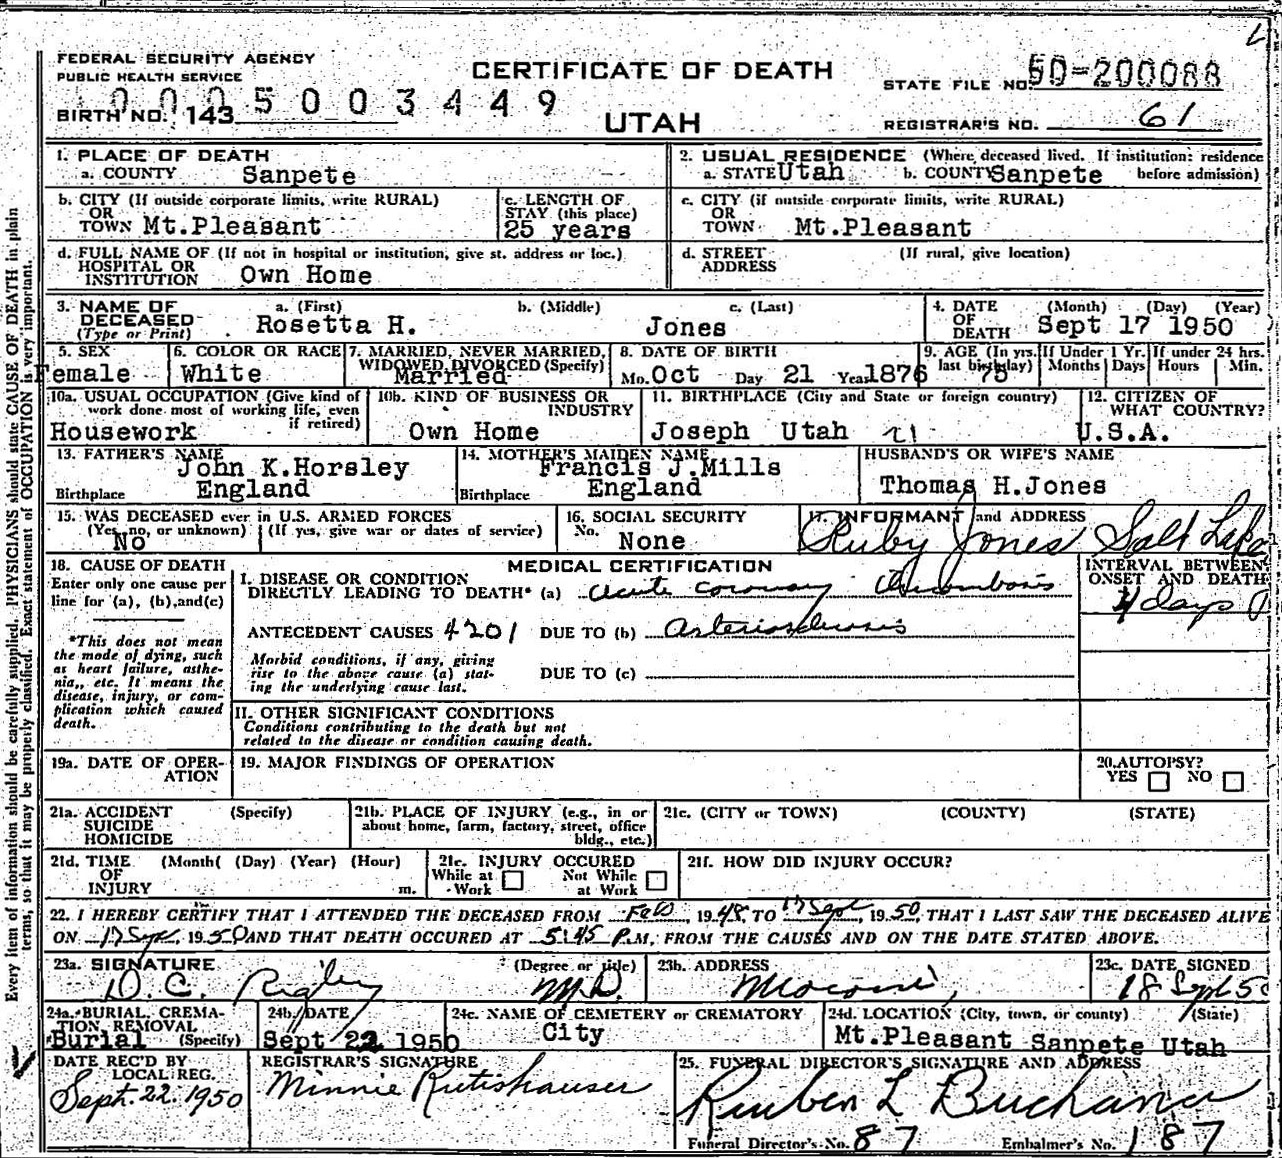 FEDERAL SECURITY AGENCY
PUBLIC HEALTH SERVICE
CERTIFICATE OF DEATH
STATE FILE NO. 50-200088
0005003449
BIRTH NO. 143
UTAH
REGISTRAR'S NO. 61
1. PLACE OF DEATH
a. COUNTY Sanpete
2. USUAL RESIDENCE (Where deceased lived. If institution: residence before admission)
a. STATE Utah b. COUNTY Sanpete
b. CITY (If outside corporate limits, write RURAL)
OR
TOWN Mt.Pleasant
c. LENGTH OF
STAY (this place)
25 years
c. CITY (if outside corporate limits, write RURAL)
OR
TOWN Mt.Pleasant
d. FULL NAME OF (If not in hospital or institution, give st. address or loc.)
HOSPITAL OR
INSTITUTION Own Home
d. STREET
ADDRESS
(If rural, give location)
3. NAME OF
DECEASED
(Type or Print)
a. (First) b. (Middle) c. (Last)
Rosetta H. Jones
4. DATE
OF
DEATH
(Month) (Day) (Year)
Sept 17 1950
5. SEX
Female
6. COLOR OR RACE
White
7. MARRIED, NEVER MARRIED,
WIDOWED, DIVORCED (Specify)
Married
8. DATE OF BIRTH
Mo. Oct Day 21 Year 1876
9. AGE (In yrs.
last birthday)
75
If Under 1 Yr.
Months Days
If under 24 hrs.
Hours Min.
10a. USUAL OCCUPATION (Give kind of
work done most of working life, even
if retired)
Housework
10b. KIND OF BUSINESS OR
INDUSTRY
Own Home
11. BIRTHPLACE (City and State or foreign country)
Joseph Utah
12. CITIZEN OF
WHAT COUNTRY?
U.S.A.
13. FATHER'S NAME
John K.Horsley
Birthplace England
14. MOTHER'S MAIDEN NAME
Francis J.Mills
Birthplace England
HUSBAND'S OR WIFE'S NAME
Thomas H.Jones
15. WAS DECEASED ever in U.S. ARMED FORCES
(Yes, no, or unknown) (If yes, give war or dates of service)
No
16. SOCIAL SECURITY
No. None
17. INFORMANT and ADDRESS
Ruby Jones Salt Lake
18. CAUSE OF DEATH
Enter only one cause per
line for (a), (b), and (c)
*This does not mean
the mode of dying, such
as heart failure, asthe-
nia,, etc. It means the
disease, injury, or com-
plication which caused
death.
MEDICAL CERTIFICATION
I. DISEASE OR CONDITION
DIRECTLY LEADING TO DEATH* (a) Acute coronary thrombosis
ANTECEDENT CAUSES 4201 DUE TO (b) Arteriosclerosis
Morbid conditions, if any, giving
rise to the above cause (a) stat-
ing the underlying cause last.
DUE TO (c)
INTERVAL BETWEEN
ONSET AND DEATH
4 days
II. OTHER SIGNIFICANT CONDITIONS
Conditions contributing to the death but not
related to the disease or condition causing death.
19a. DATE OF OPER-
ATION
19. MAJOR FINDINGS OF OPERATION
20. AUTOPSY?
YES NO
21a. ACCIDENT (Specify)
SUICIDE
HOMICIDE
21b. PLACE OF INJURY (e.g., in or
about home, farm, factory, street, office
bldg., etc.)
21c. (CITY or TOWN) (COUNTY) (STATE)
21d. TIME (Month( (Day) (Year) (Hour)
OF
INJURY m.
21e. INJURY OCCURED
While at Not While
Work at Work
21f. HOW DID INJURY OCCUR?
22. I HEREBY CERTIFY THAT I ATTENDED THE DECEASED FROM Feb, 1948, TO 17 Sept, 1950, THAT I LAST SAW THE DECEASED ALIVE
ON 17 Sept, 1950 AND THAT DEATH OCCURED AT 5:45 P.M, FROM THE CAUSES AND ON THE DATE STATED ABOVE.
23a. SIGNATURE (Degree or title)
D. C. Rigby M.D.
23b. ADDRESS
23c. DATE SIGNED
18 Sept 50
24a. BURIAL, CREMA-
TION, REMOVAL
Burial (Specify)
24b. DATE
Sept 22 1950
24c. NAME OF CEMETERY or CREMATORY
City
24d. LOCATION (City, town, or county) (State)
Mt.Pleasant Sanpete Utah
DATE REC'D BY
LOCAL REG.
Sept. 22. 1950
REGISTRAR'S SIGNATURE
Minnie Rutishauser
25. FUNERAL DIRECTOR'S SIGNATURE AND ADDRESS
Reuben L Buchanan
Funeral Director's No. 87 Embalmer's No. 187
Every item of information should be carefully supplied. PHYSICIANS should state CAUSE OF DEATH in plain
terms, so that it may be properly classified. Exact statement of OCCUPATION is very important.